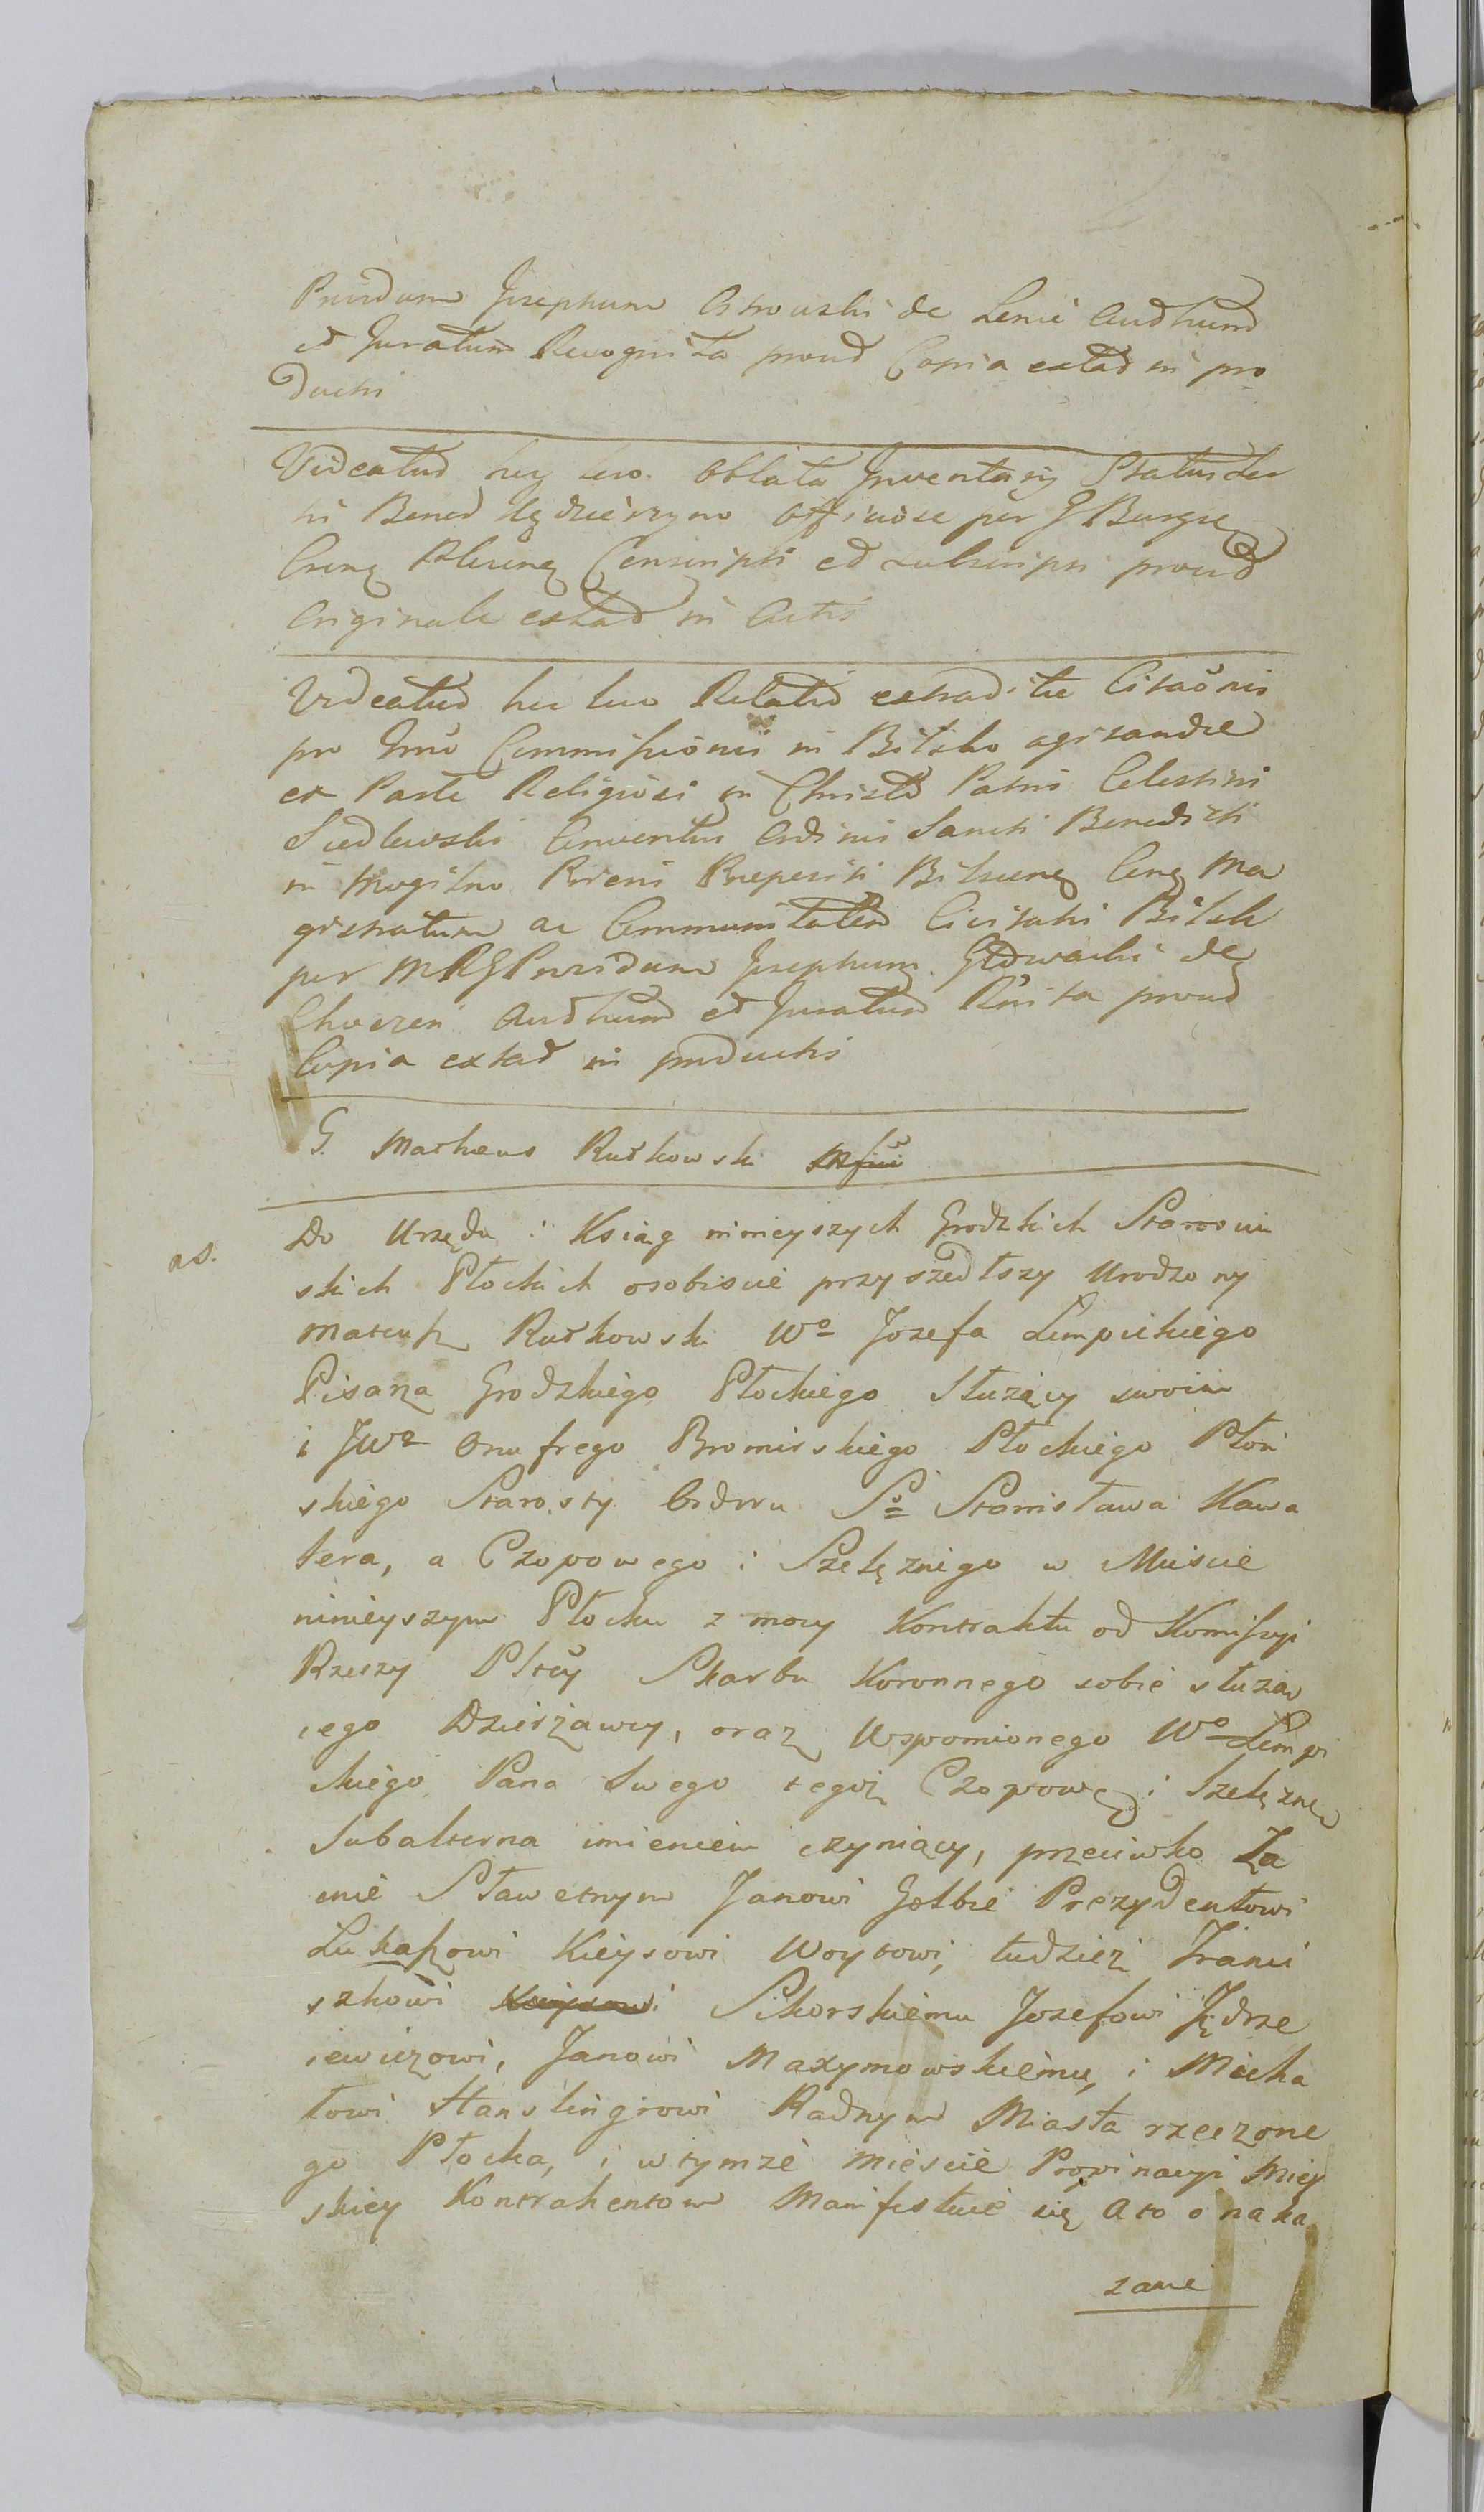 Providum Josephum Ostrowski de Lenie Audhum
et Juratum Recognita proud Copia extad in pro
ducti
Videatud hoc loco Oblata Inventarij Status
ti Bened officiose per G Burgr
Conscripti ed subscripti proud
Originale extad in Actis
Videatud hic loco Relatio extradite Citaonis
pro Commissionis in Bilsko agitandie
ex Parte Religiosi in Christo Patris Celestini
Siedlewski Conventus Ordinis Sancti Benedicti
in Mogilno Prepositi Bilscen Ma
gistratum ac Communitatem Civitatis Bilsk
per Providum Josephum de
Audhum ed Juratum Rnita proud
Copia extad in productis
G. Matheus Rutkowski
Do Urzędu i Ksiąg ninieyszych Grodzkich Starościn
ad.
skich Płockich osobiscie przyszedłszy Urodzony
Mateusz Rutkowski Wo Jozefa Lempickiego
Pisarza Grodzkiego Płockiego Służący swoim
i JWo Onufrego Bromirskiego Płockiego Płoń
skiego Starosty Orderu So Stanisława Kawa
lera, a Czopowego i Szelężnego w Miescie
ninieyszym Płocku z mocy Kontraktu od Komissyi
Rzeczy Pltey Skarbu Koronnego sobie służą
cego Dzierżawcy, oraz Wspomionego Wo Lempi
ckiego Pana Swego tegoż Czopowe i Szelężne
Subalterna imieniem czyniący, przeciwko Za
cnie Sławetnym Janowi Gołbie Prezydentowi
Łukaszowi Kieysowi Woytowi, tudzież Franci
szkowi Sikorskiemu Jozefowi Jędrze
iewiczowi, Janowi Maxymowskiemu, i Micha
łowi Hanslingrowi Radnym Miasta rzeczone
go Płocka, i wtymże Miescie Propinacyi Miey
skiey Kontrahentom Manifestuie się Ato o naka
zanie